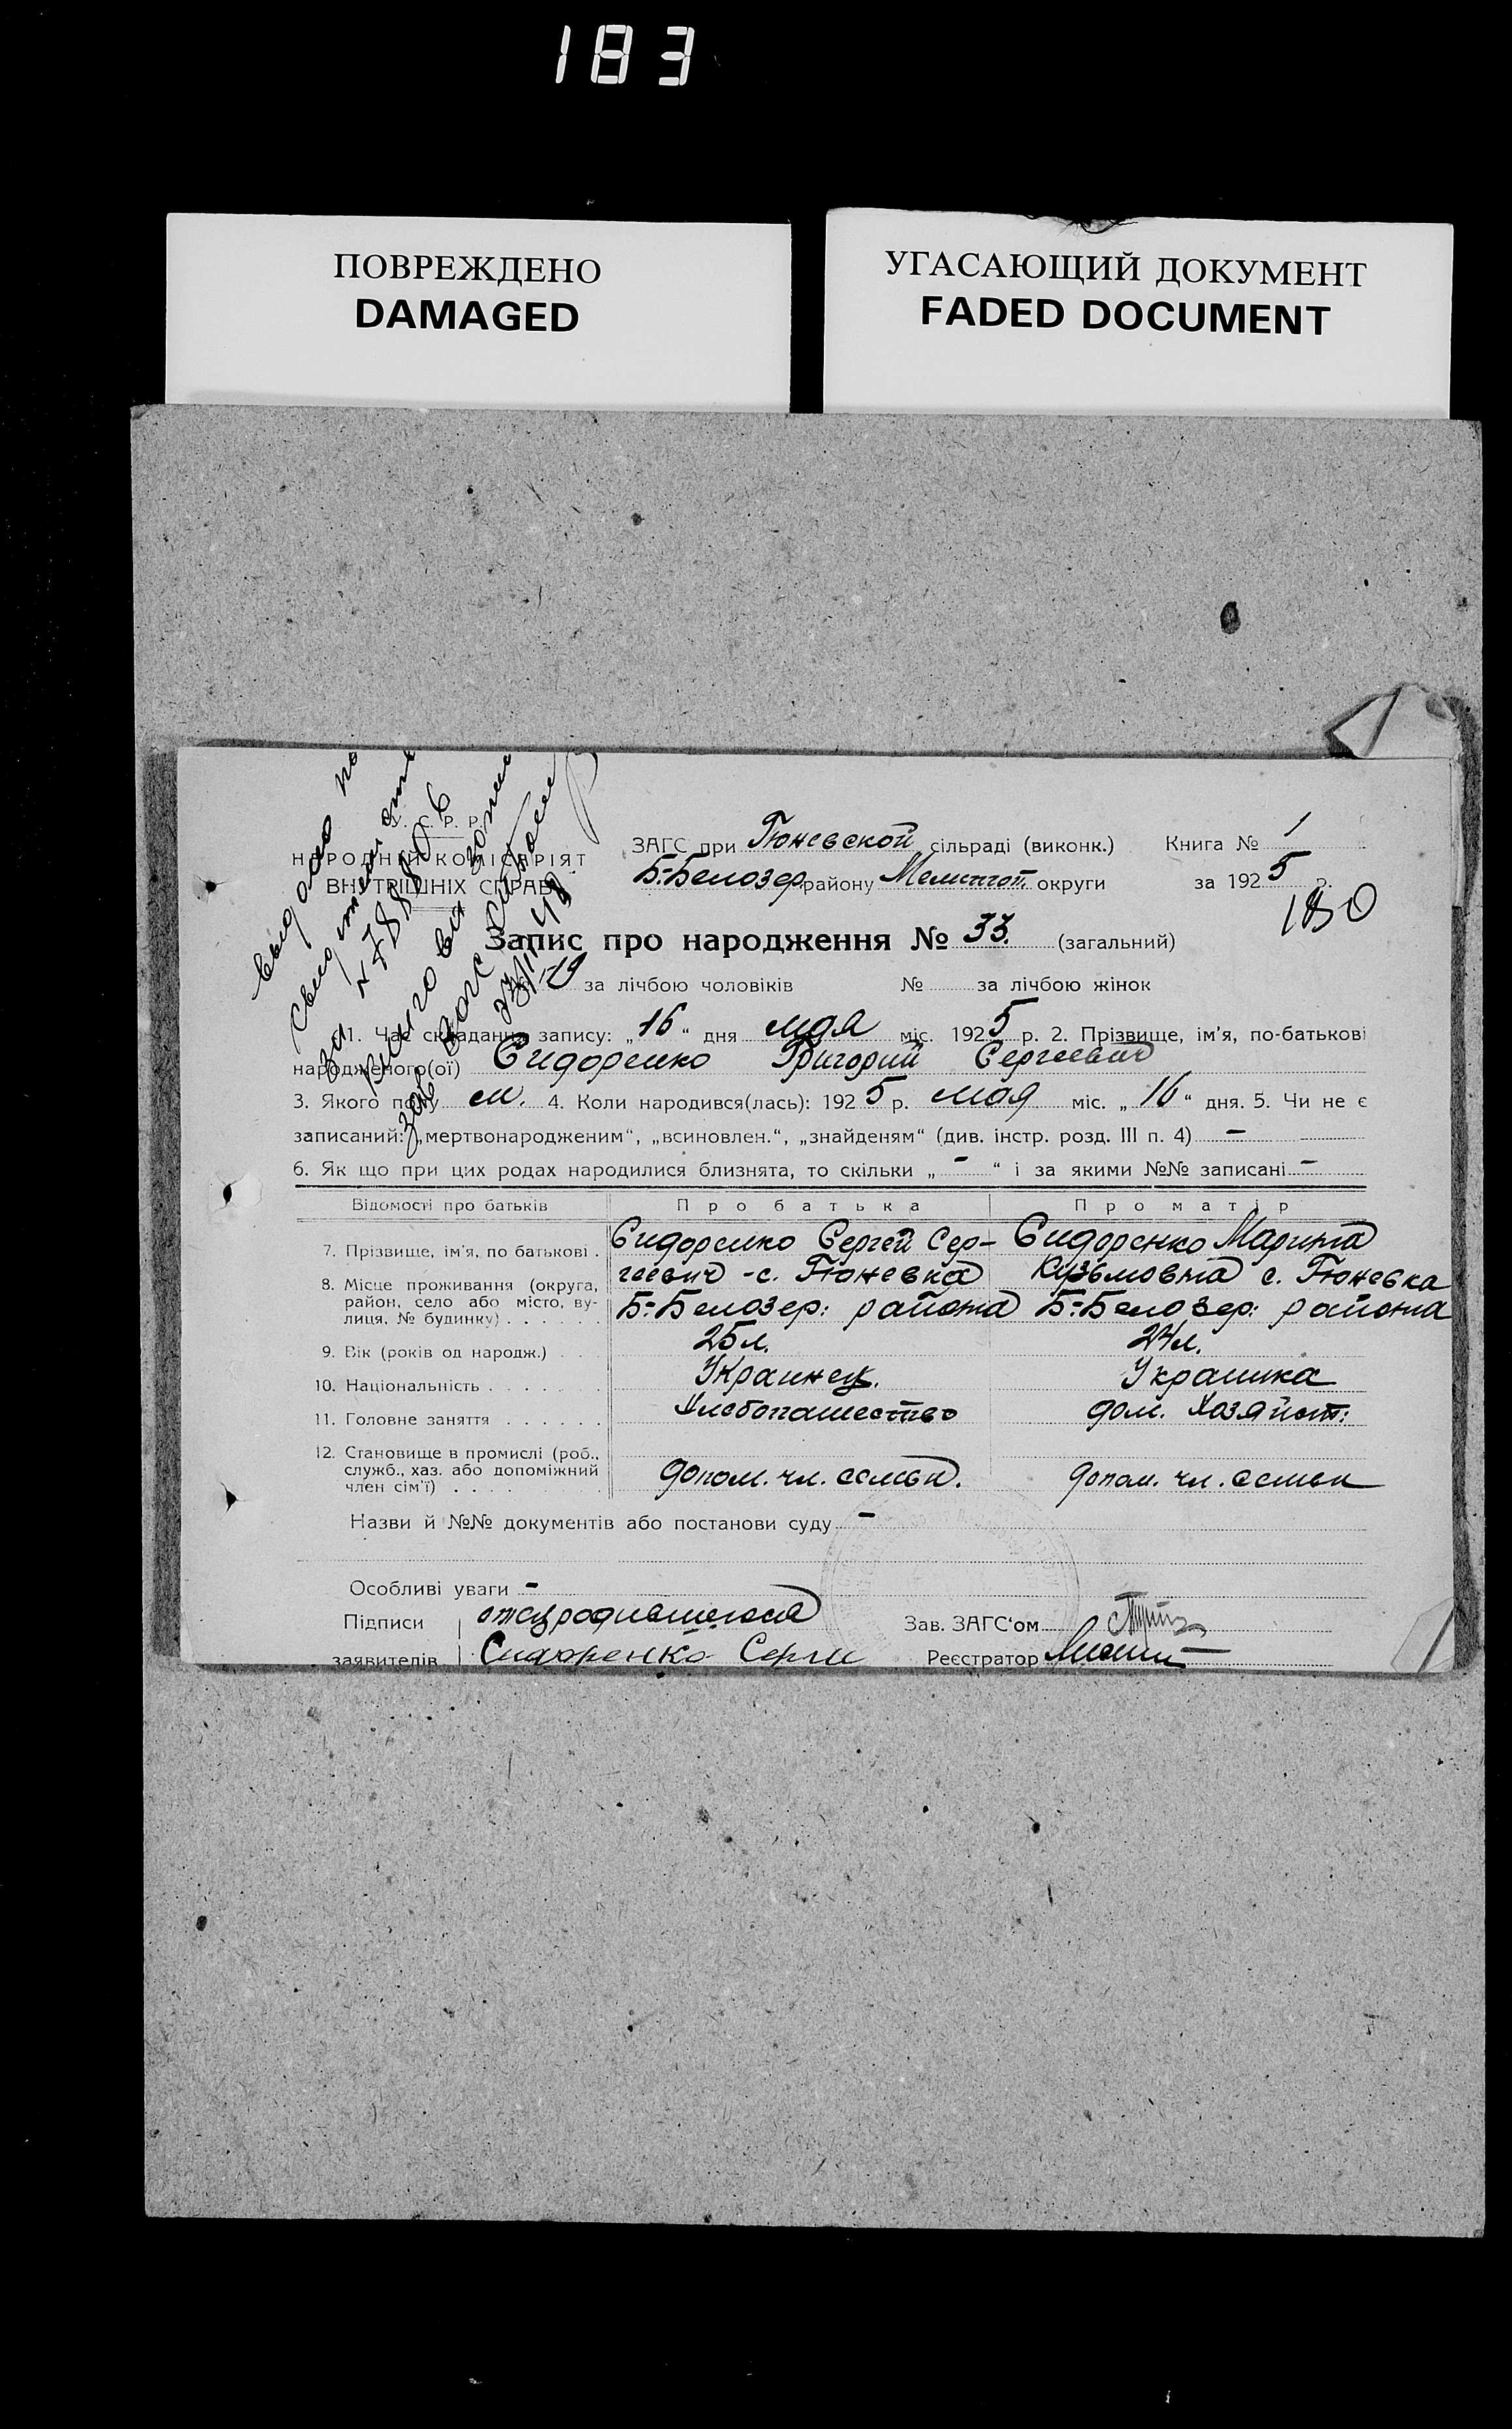 183
ПОВРЕЖДЕНО
DAMAGED
УГАСАЮЩИЙ ДОКУМЕНТ
FADED DOCUMENT
У. С. Р. Р.
НАРОДНІЙ КОМІСАРІЯТ
ВНУТРІШНІХ СПРАВ
выдано
свидет
за
загс
ЗАГС при Гюневской сільраді (виконк.) Книга № 1
Б-Белозер. району Мелитоп. округи за 1925 р.
180
Запис про народження № 33. (загальний)
19 за лічбою чоловіків № за лічбою жінок
1. Час складання запису: „16“ дня мая міс. 1925 р. 2. Прізвище, ім'я, по-батькові
народженого(ої) Сидоренко Григорий Сергеевич
3. Якого полу м. 4. Коли народився(лась): 1925 р. мая міс. „16“ дня. 5. Чи не є
записаний: „мертвонародженим“, „всиновлен.“, „знайденям“ (див. інстр. розд. III п. 4) –
6. Як що при цих родах народилися близнята, то скільки „ – “ і за якими №№ записані –
Відомості про батьків Про батька Про матір
7. Прізвище, ім'я, по батькові . Сидоренко Сергей Сер- Сидоренко Марина
геевич - с. Гюневка Кузьмовна с. Гюневка
8. Місце проживання (округа,
район, село або місто, ву-
лиця, № будинку) . . . . . . Б-Белозер: района Б-Белозер: района
9. Вік (років од народж.) . . 25 л. 24 л.
10. Національність . . . . . . Украинец. Украинка
11. Головне заняття . . . . . . Хлебопашество дом. Хозяйст:
12. Становище в промислі (роб.,
служб., хаз. або допоміжний
член сім'ї) . . . . допом. чл. семьи. допом. чл. семьи
Назви й №№ документів або постанови суду –
Особливі уваги –
Підписи отец родившегося Зав. ЗАГС'ом
заявителів Сидоренко Серги Реєстратор